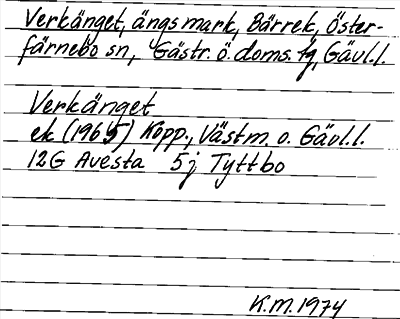 Verkänget, ängsmark, Bärrek, Öster-
färnebo sn, Gästr. ö. doms. tg, Gävl.l.
Verkänget
ek (1965) Kopp., Västm. o. Gävl.l.
12G Avesta 5j Tyttbo
K.M.1974